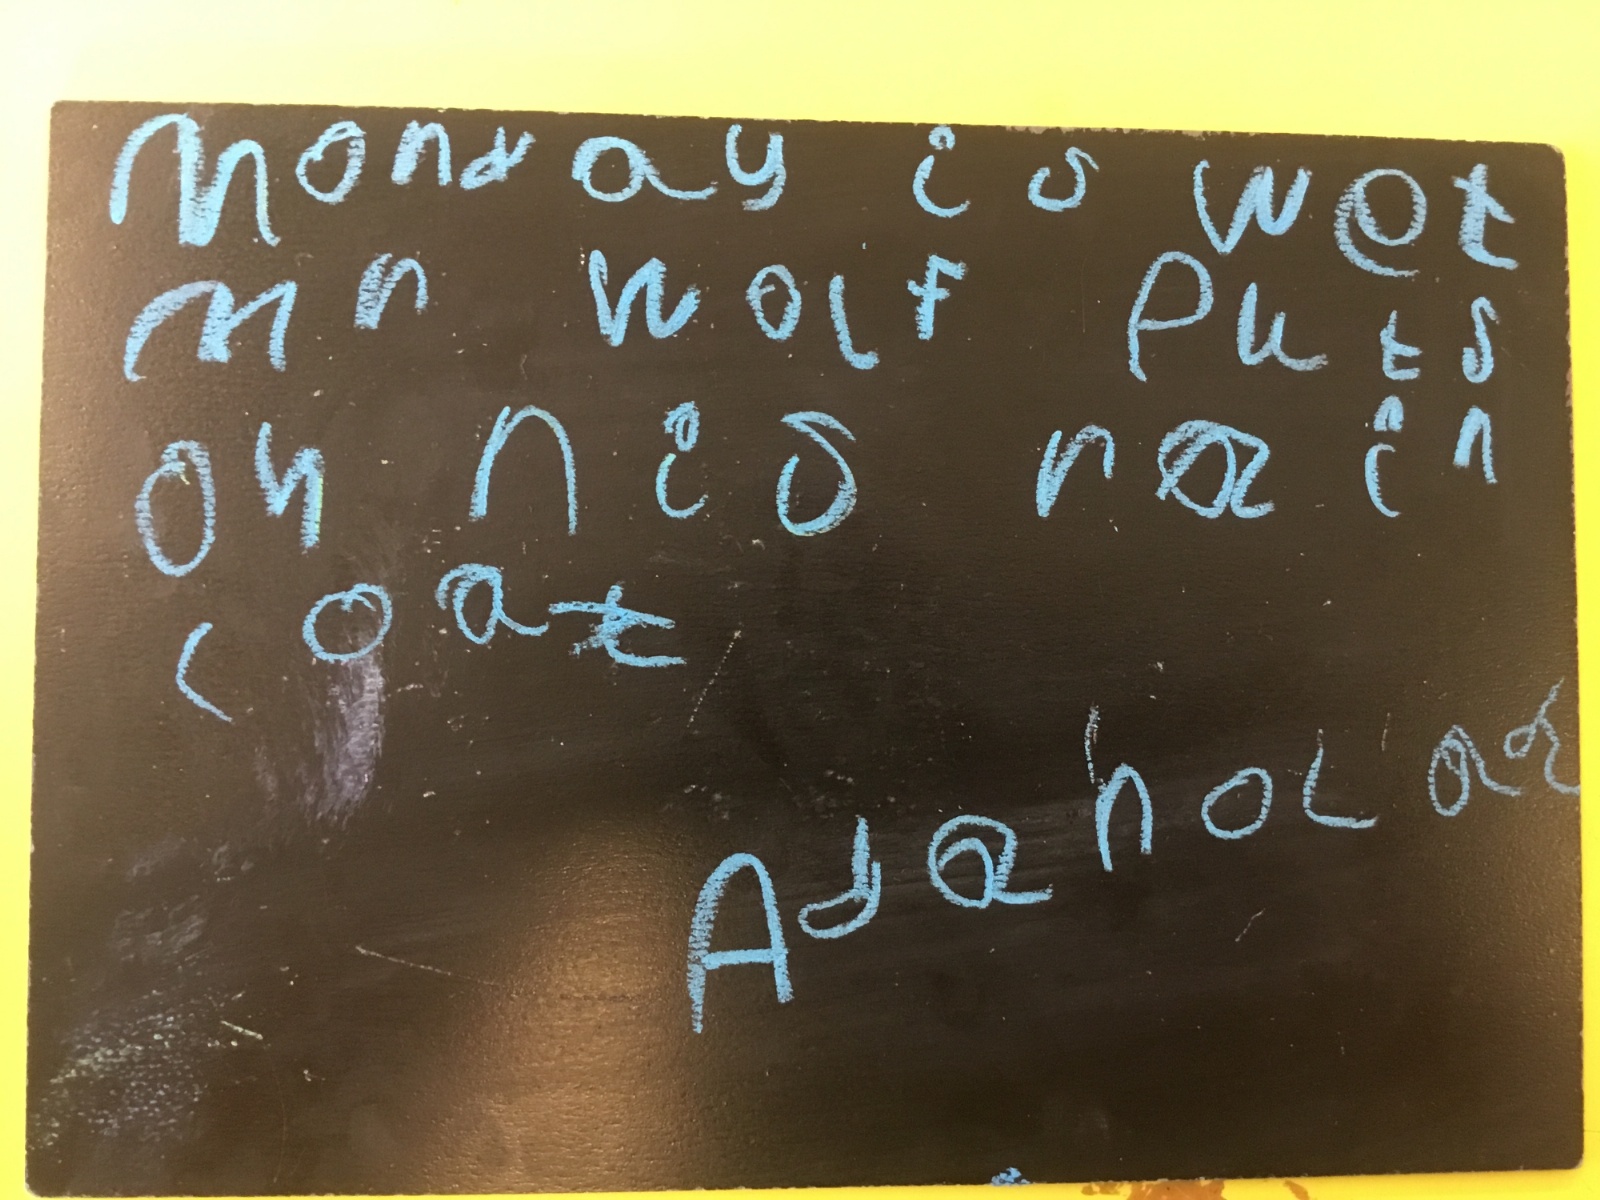 Monday is wet
Mr Wolf Puts
on his rain
coat